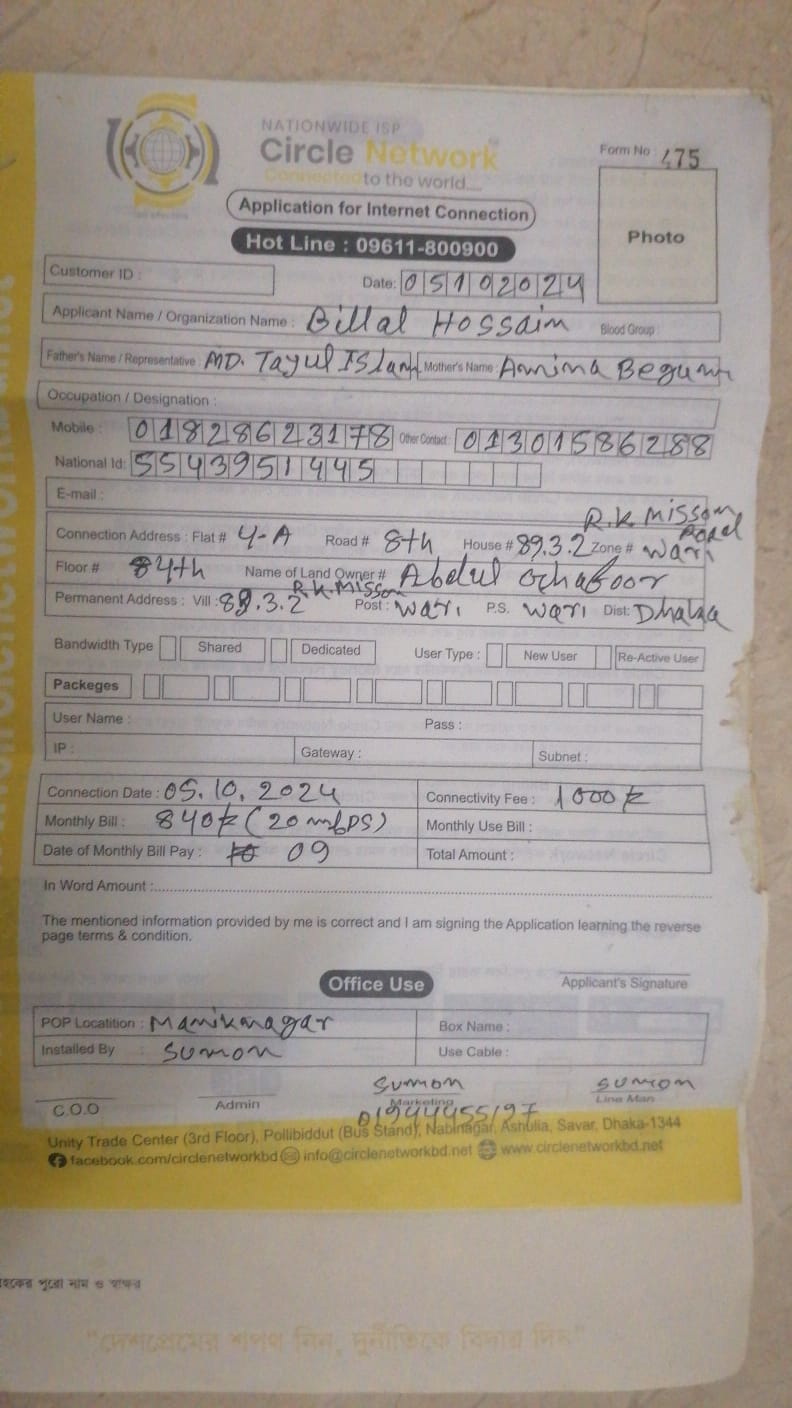 NATIONWIDE ISP
Circle Network
Connected to the world....
Form No : 475
Application for Internet Connection
Photo
Hot Line : 09611-800900
Customer ID :
Date: 05102024
Applicant Name / Organization Name : Billal Hossain Blood Group :
Father's Name / Representative : MD. Tayul Islam Mother's Name : Amina Begum
Occupation / Designation :
Mobile : 01828623178 Other Contact : 01301586288
National Id: 5543951445
E-mail :
R.K. Missom Road
Connection Address : Flat # 4-A Road # 8th House # 89.3.2 Zone # Wari
Floor # 4th Name of Land Owner # Abdul Ghafoor
R.K. Missom
Permanent Address : Vill : 89.3.2 Post : Wari P.S. Wari Dist: Dhaka
Bandwidth Type Shared Dedicated User Type : New User Re-Active User
Packeges
User Name : Pass :
IP : Gateway : Subnet :
Connection Date : 05.10.2024 Connectivity Fee : 1000tk
Monthly Bill : 840tk (20 mbps) Monthly Use Bill :
Date of Monthly Bill Pay : 09 Total Amount :
In Word Amount :
The mentioned information provided by me is correct and I am signing the Application learning the reverse
page terms & condition.
Office Use
Applicant's Signature
POP Locatition : Maniknagar Box Name :
Installed By : Sumon Use Cable :
Sumon Sumon
C.O.O Admin Marketing Line Man
01944455197
Unity Trade Center (3rd Floor), Pollibiddut (Bus Stand), Nabinagar, Ashulia, Savar, Dhaka-1344
facebook.com/circlenetworkbd info@circlenetworkbd.net www.circlenetworkbd.net
হকের পুরো নাম ও স্বাক্ষর
"দেশপ্রেমের শপথ নিন, দুর্নীতিকে বিদায় দিন"